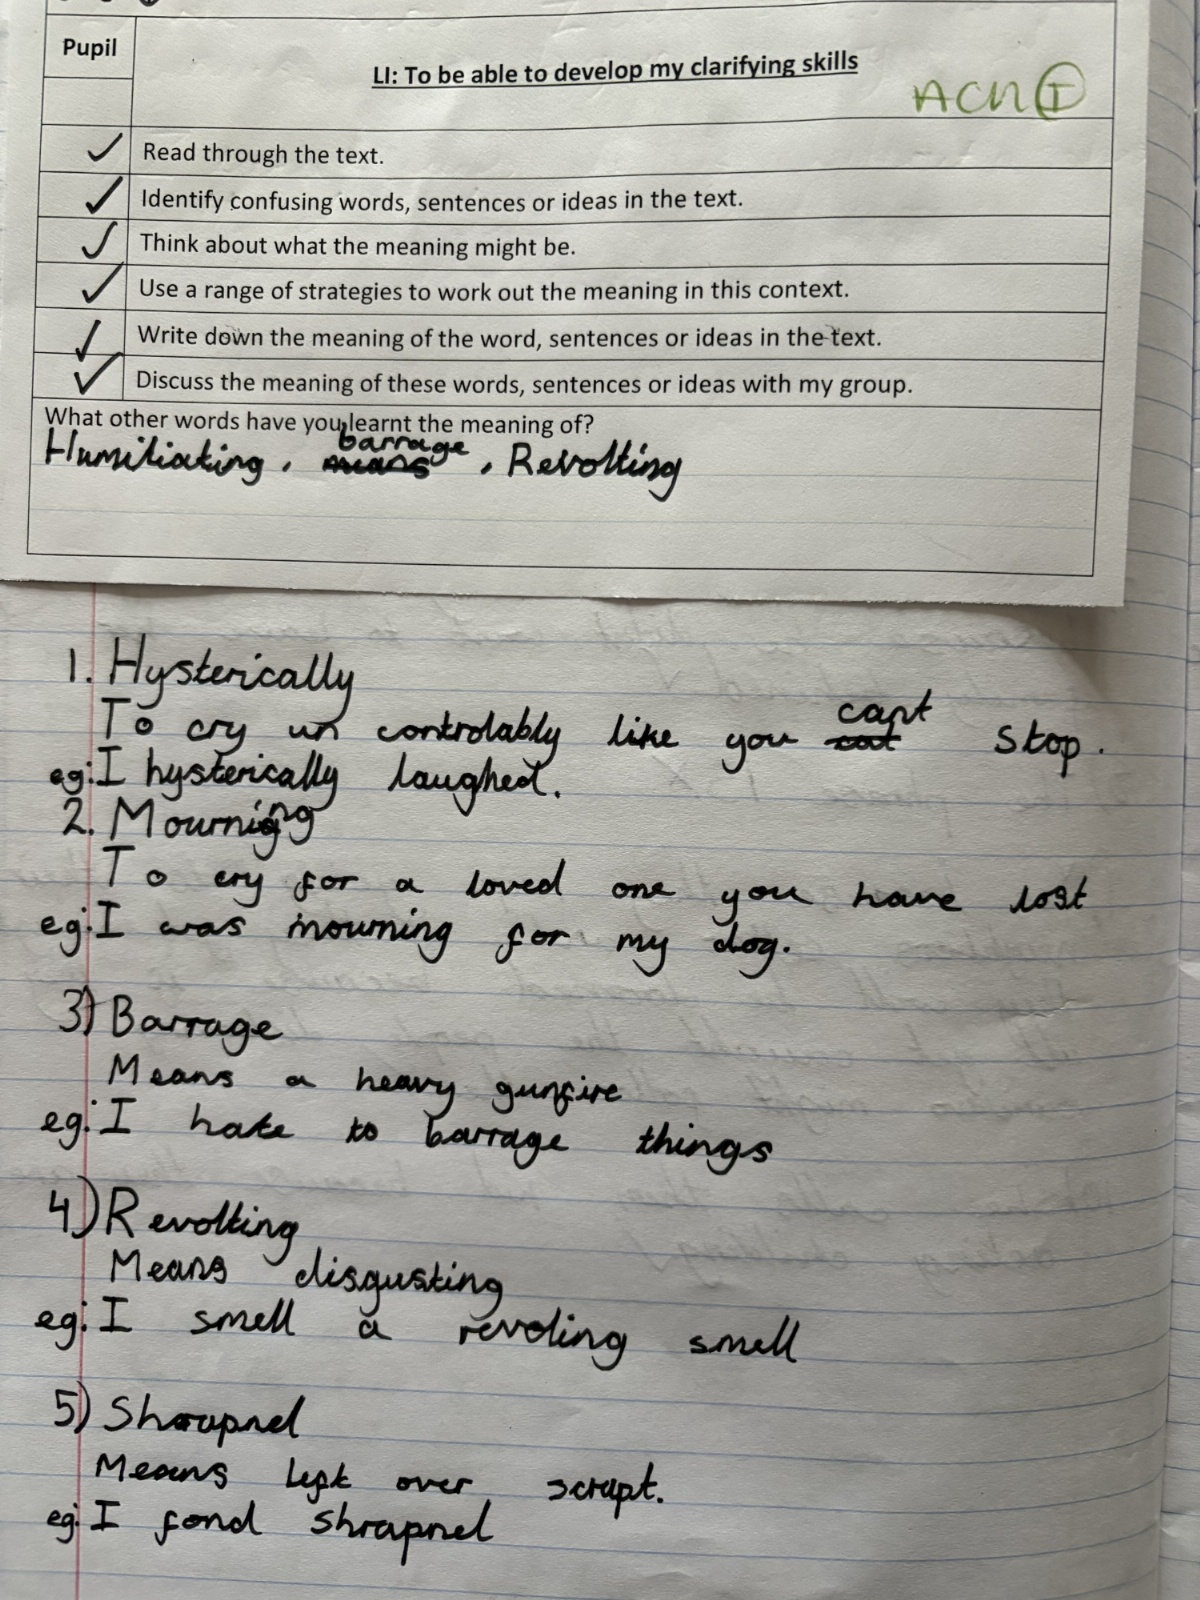 Pupil
LI: To be able to develop my clarifying skills
ACH I
✓ Read through the text.
✓ Identify confusing words, sentences or ideas in the text.
✓ Think about what the meaning might be.
✓ Use a range of strategies to work out the meaning in this context.
✓ Write down the meaning of the word, sentences or ideas in the text.
✓ Discuss the meaning of these words, sentences or ideas with my group.
What other words have you learnt the meaning of?
Humiliating, barrage, Revolting
1. Hysterically
To cry un controlably like you cant stop.
eg: I hysterically laughed.
2. Mourning
To cry for a loved one you have lost
eg: I was mourning for my dog.
3) Barrage
Means a heavy gunfire
eg: I hate to barrage things
4) Revolting
Means disgusting
eg: I smell a revoling smell
5) Shrapnel
Means left over scrapt.
eg: I fond shrapnel